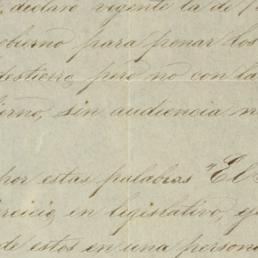 , declaro vigente la de 1
obierno para penar los
destierro, pero no con la
ierno, sin audiencia n
por estas palabras "El
rcicio en legislativo, y
de estos en una persona